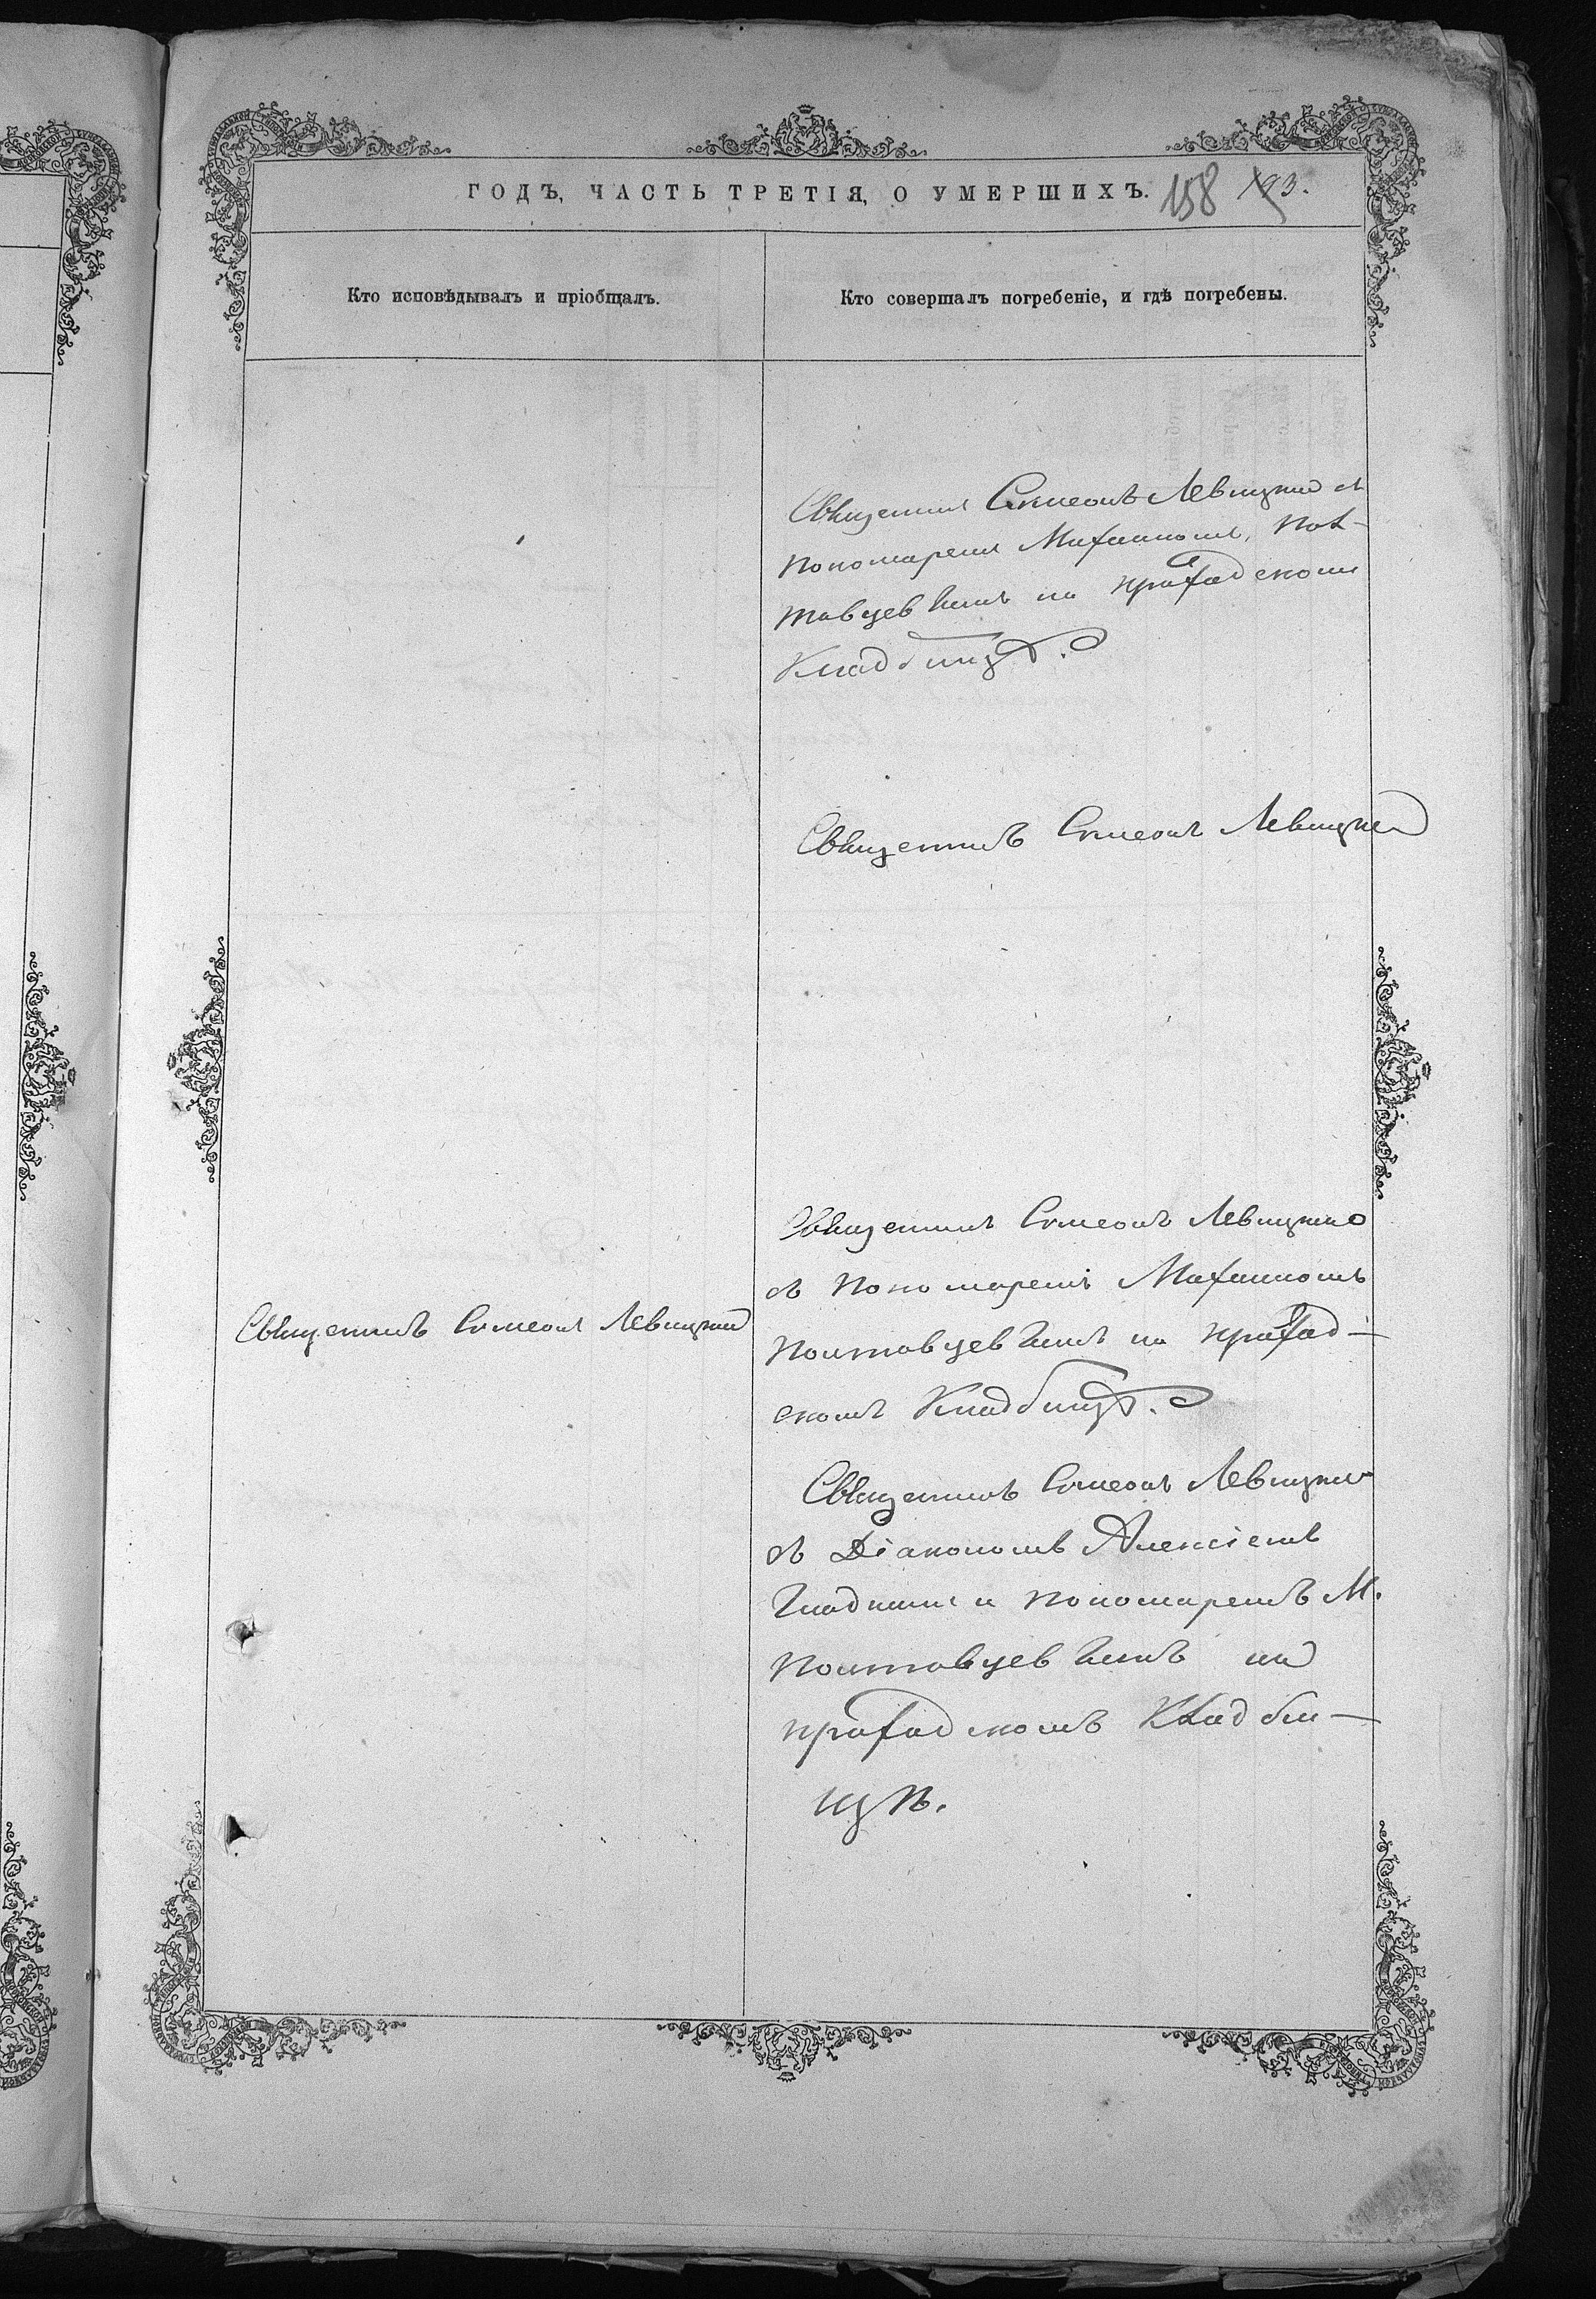 ГОДЪ, ЧАСТЬ ТРЕТІЯ, О УМЕРШИХЪ. 158 193.
Кто исповѣдывалъ и пріобщалъ.
Кто совершалъ погребеніе, и гдѣ погребены.
Священникъ Симеонъ Левицкій съ
пономаремъ Михаиломъ Пол-
тавцевымъ на приходскомъ
кладбищѣ.
Священникъ Симеонъ Левицкій
Священникъ Симеонъ Левицкій
Священникъ Симеонъ Левицкій
съ пономаремъ Михаиломъ
Полтавцевымъ на приход-
скомъ кладбищѣ.
Священникъ Симеонъ Левицкій
съ Діакономъ Алексіемъ
Гладкимъ и пономаремъ М.
Полтавцевымъ на
приходскомъ кладби-
щѣ.